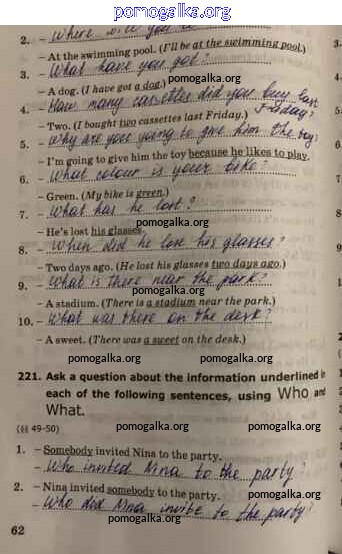 http://pomogalka.org/
2. – Where will you be
– At the swimming pool. (I'll be at the swimming pool.)
3. – What have you got?
pomogalka.org
– A dog. (I have got a dog.)
4. – How many cassettes did you buy last
Friday?
– Two. (I bought two cassettes last Friday.)
5. – Why are you going to give him the toy?
pomogalka.org
– I'm going to give him the toy because he likes to play.
6. – What colour is your bike?
pomogalka.org
– Green. (My bike is green.)
7. – What has he lost?
pomogalka.org
– He's lost his glasses.
8. – When did he lose his glasses?
– Two days ago. (He lost his glasses two days ago.)
9. – What is there near the park?
pomogalka.org
– A stadium. (There is a stadium near the park.)
10. – What was there on the desk?
pomogalka.org
– A sweet. (There was a sweet on the desk.)
pomogalka.org pomogalka.org
221. Ask a question about the information underlined in
each of the following sentences, using Who and
What.
(§§ 49-50) pomogalka.org
1. – Somebody invited Nina to the party.
– Who invited Nina to the party?
pomogalka.org
2. – Nina invited somebody to the party.
– Who did Nina invite to the party?
pomogalka.org
62
pomogalka.org